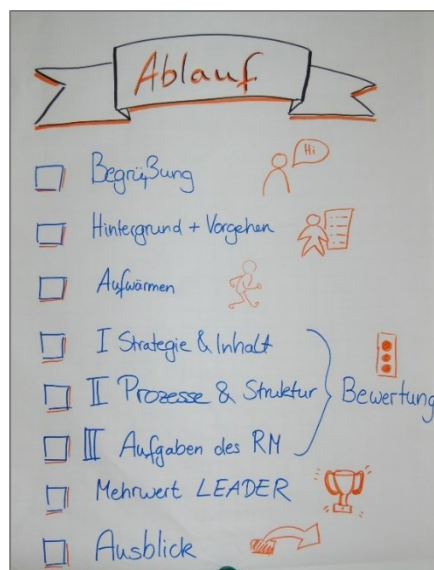 Ablauf
Hi
Begrüßung
Hintergrund + Vorgehen
Aufwärmen
I Strategie & Inhalt
II Prozesse & Struktur
Bewertung
III Aufgaben des RM
Mehrwert LEADER
Ausblick